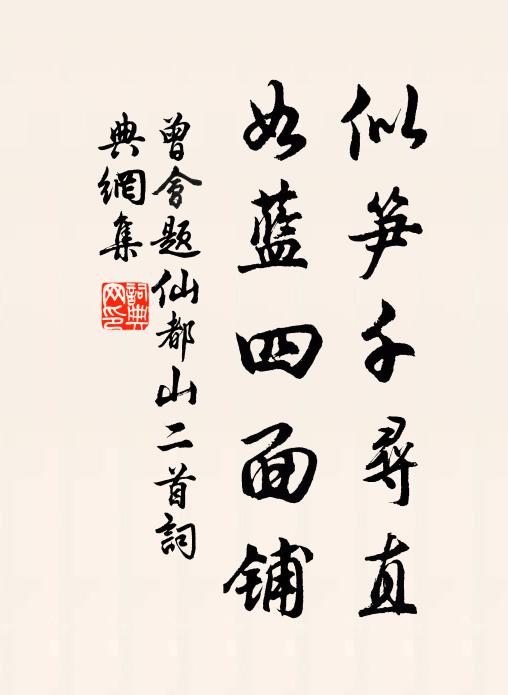 似笋千尋直
如藍四面铺
曾會題仙都山二首詞
典網集
詞典
网印